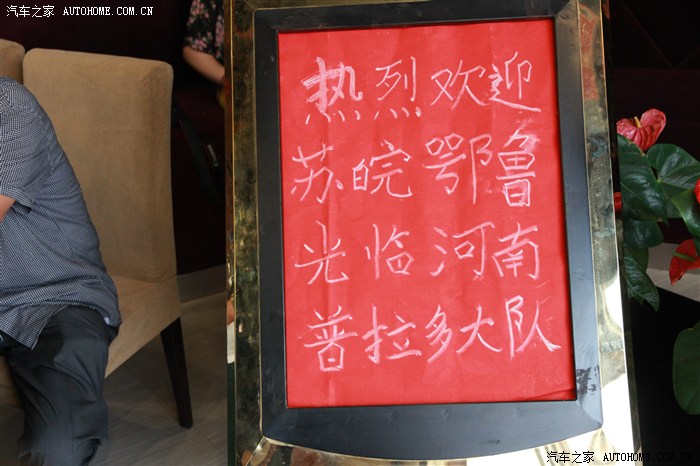 汽车之家 AUTOHOME.COM.CN
热烈欢迎
苏皖鄂鲁
光临河南
普拉多大队
汽车之家 AUTOHOME.COM.CN